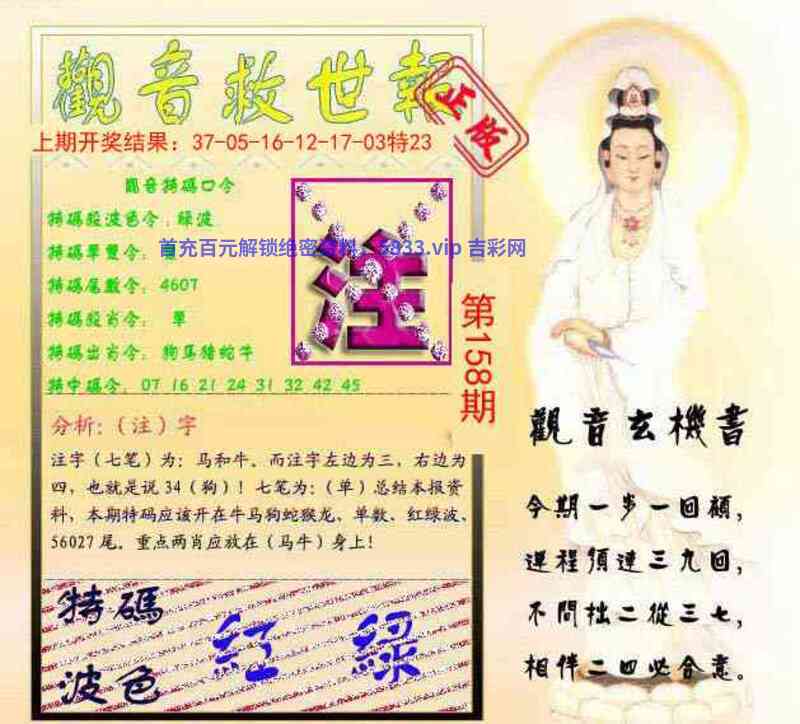 觀音救世報
正版
上期开奖结果：37-05-16-12-17-03特23
觀音特碼口令
特碼段波色令：綠波
特碼單雙令：
首充百元解锁绝密资料
.vip 吉彩网
特碼尾數令：4607
特碼段肖令： 單
特碼出肖令：狗馬豬蛇牛
特中碼令：07 16 21 24 31 32 42 45
注
第158期
分析:（注）字
注字（七笔）为：马和牛。而注字左边为三，右边为
四，也就是说34（狗）！七笔为：（单）总结本报资
料，本期特码应该开在牛马狗蛇猴龙、单数、红绿波、
56027尾。重点两肖应放在（马牛）身上！
特碼
波色
紅 綠
觀音玄機書
今期一步一回顧，
運程須連三九回，
不問拙二從三七，
相伴二四必合意。